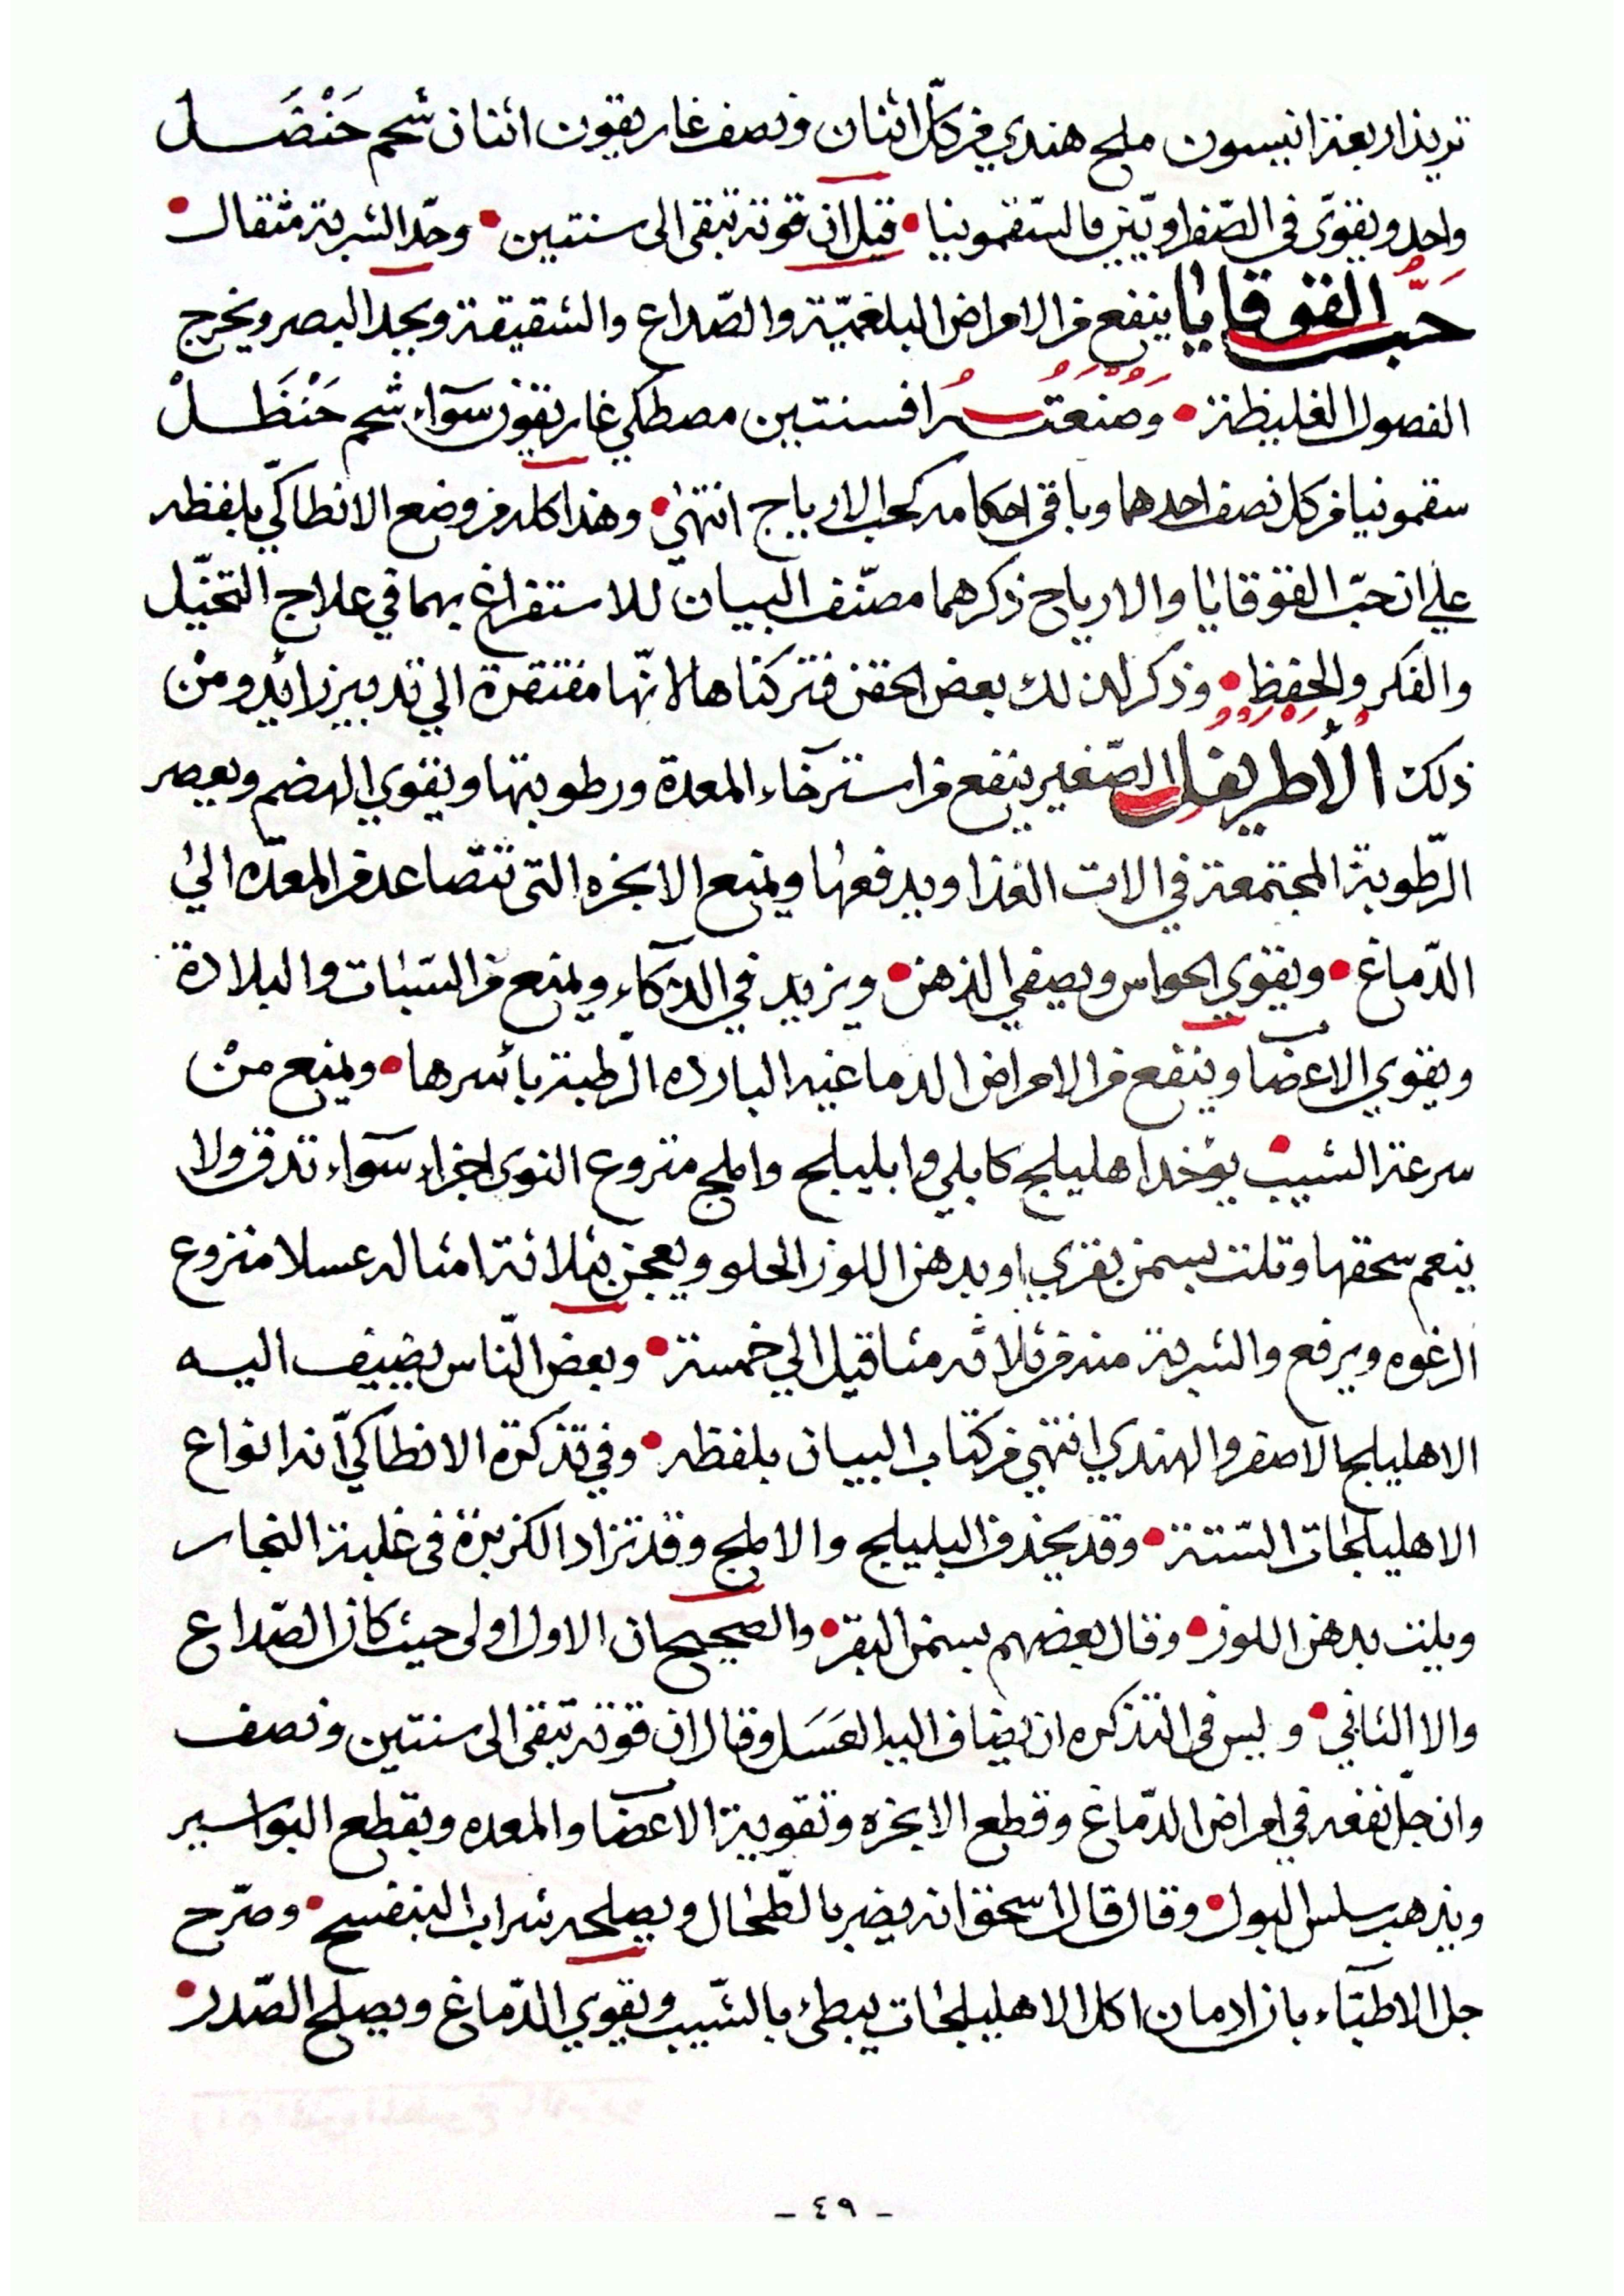 تربذ اربعة انيسون ملح هندي من كلّ اثنان ونصف غاريقون اثنان شحم حَنْضَل
واحد ويقوّى في الصّفراويّين بالسّقمونيا • قيل ان قوته تبقى الى سنتين • وحّد الشربة مثقال •
حَبُّ القوقايا ينفع من الامراض البلغميّة والصّداع والشقيقة ويحد البصر ويخرج
الفصول الغليظة • وَصَنعَتُهُ افسنتين مصطكي غاريقون سوآء شحم حَنْظَلْ
سقمونيا من كل نصف احدهما وباقى احكامه كحب الارياج انتهىٰ • وهذا كله من وضع الانطاكيّ بلفظه
علي ان حبّ القوقايا والارياج ذكرهما مصنّف البيان للاستفراغ بهما في علاج التخيّل
والفكر والحفظ • وذكر لذلك بعض الحقن فتركناها لانّها مفتقرة الي تدبير زايد ومن
ذلك الأطريفل الصّغير ينفع من استرخآء المعدة ورطوبتها ويقوي الهضم ويعصر
الرّطوبة المجتمعة في الات الغذا ويدفعها ويمنع الابخره التى تتصّاعد من المعدّه الىٰ
الدّماغ • ويقوي الحواس ويصفي الذهن • ويزيد في الذكآء ويمنع من السّبات والبلادة
ويقوي الاعضا وينفع من الامراض الدماغيه البارده الرّطبة بأسرها • ويمنع من
سرعة الشيب • يؤخد اهليلج كابلي وابليلج واملج منزوع النوى اجزاء سوآء تدق ولا
ينعم سحقها وتلت بسمن بقري او بدهن اللوز الحلو ويعجن بثلاثة امثاله عسلا منزوع
الرغوه ويرفع والشربة منه من ثلاثه مثاقيل الي خمسة • وبعض النّاس يضيف اليه
الاهليلج الاصفر والهندي انتهي من كتاب البيان بلفظه • وفي تذكرة الانطاكيّ انه انواع
الاهليلجات الستّة • وقد يحذف البليلج والاملج وقد تزاد الكزبرة فى غلبة البخار
ويلت بدهن اللوز • وقال بعضهم بسمن البقر • والصحيح ان الاول اولى حيث كان الصّداع
والا الثاني • وليس فى التذكره ان يضاف اليه العَسَل وقال ان قوته تبقى الى سنتين ونصف
وان جلّ نفعه في امراض الدّماغ وقطع الابخره وتقوية الاعضا والمعده ويقطع البواسير
ويذهب سلس البول • وقال قال اسحق انه يضر بالطّحال ويصلحه شراب البنفسج • وصرّح
جل الاطبّآء بان ادمان اكل الاهليلجات يبطئ بالشّيب ويقوي الدّماغ ويصلح الصّدر •
- ٤٩ -